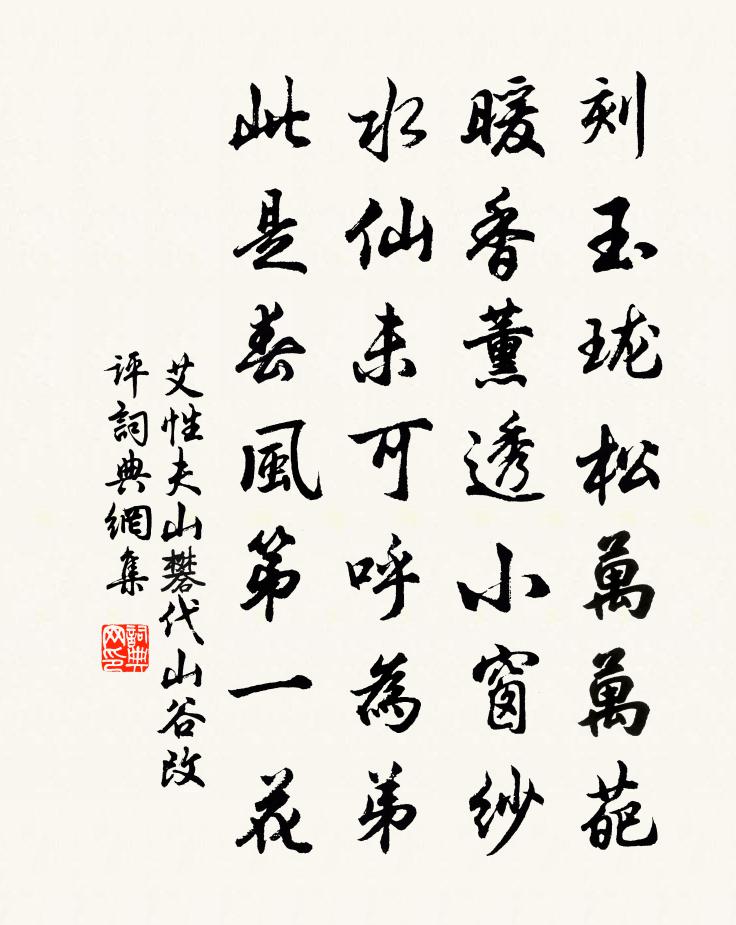 刻玉瓏松萬萬葩
暖香薰透小窗紗
水仙未可呼為弟
此是春風第一花
艾性夫山礬代山谷改
評詞典網集
詞典網印